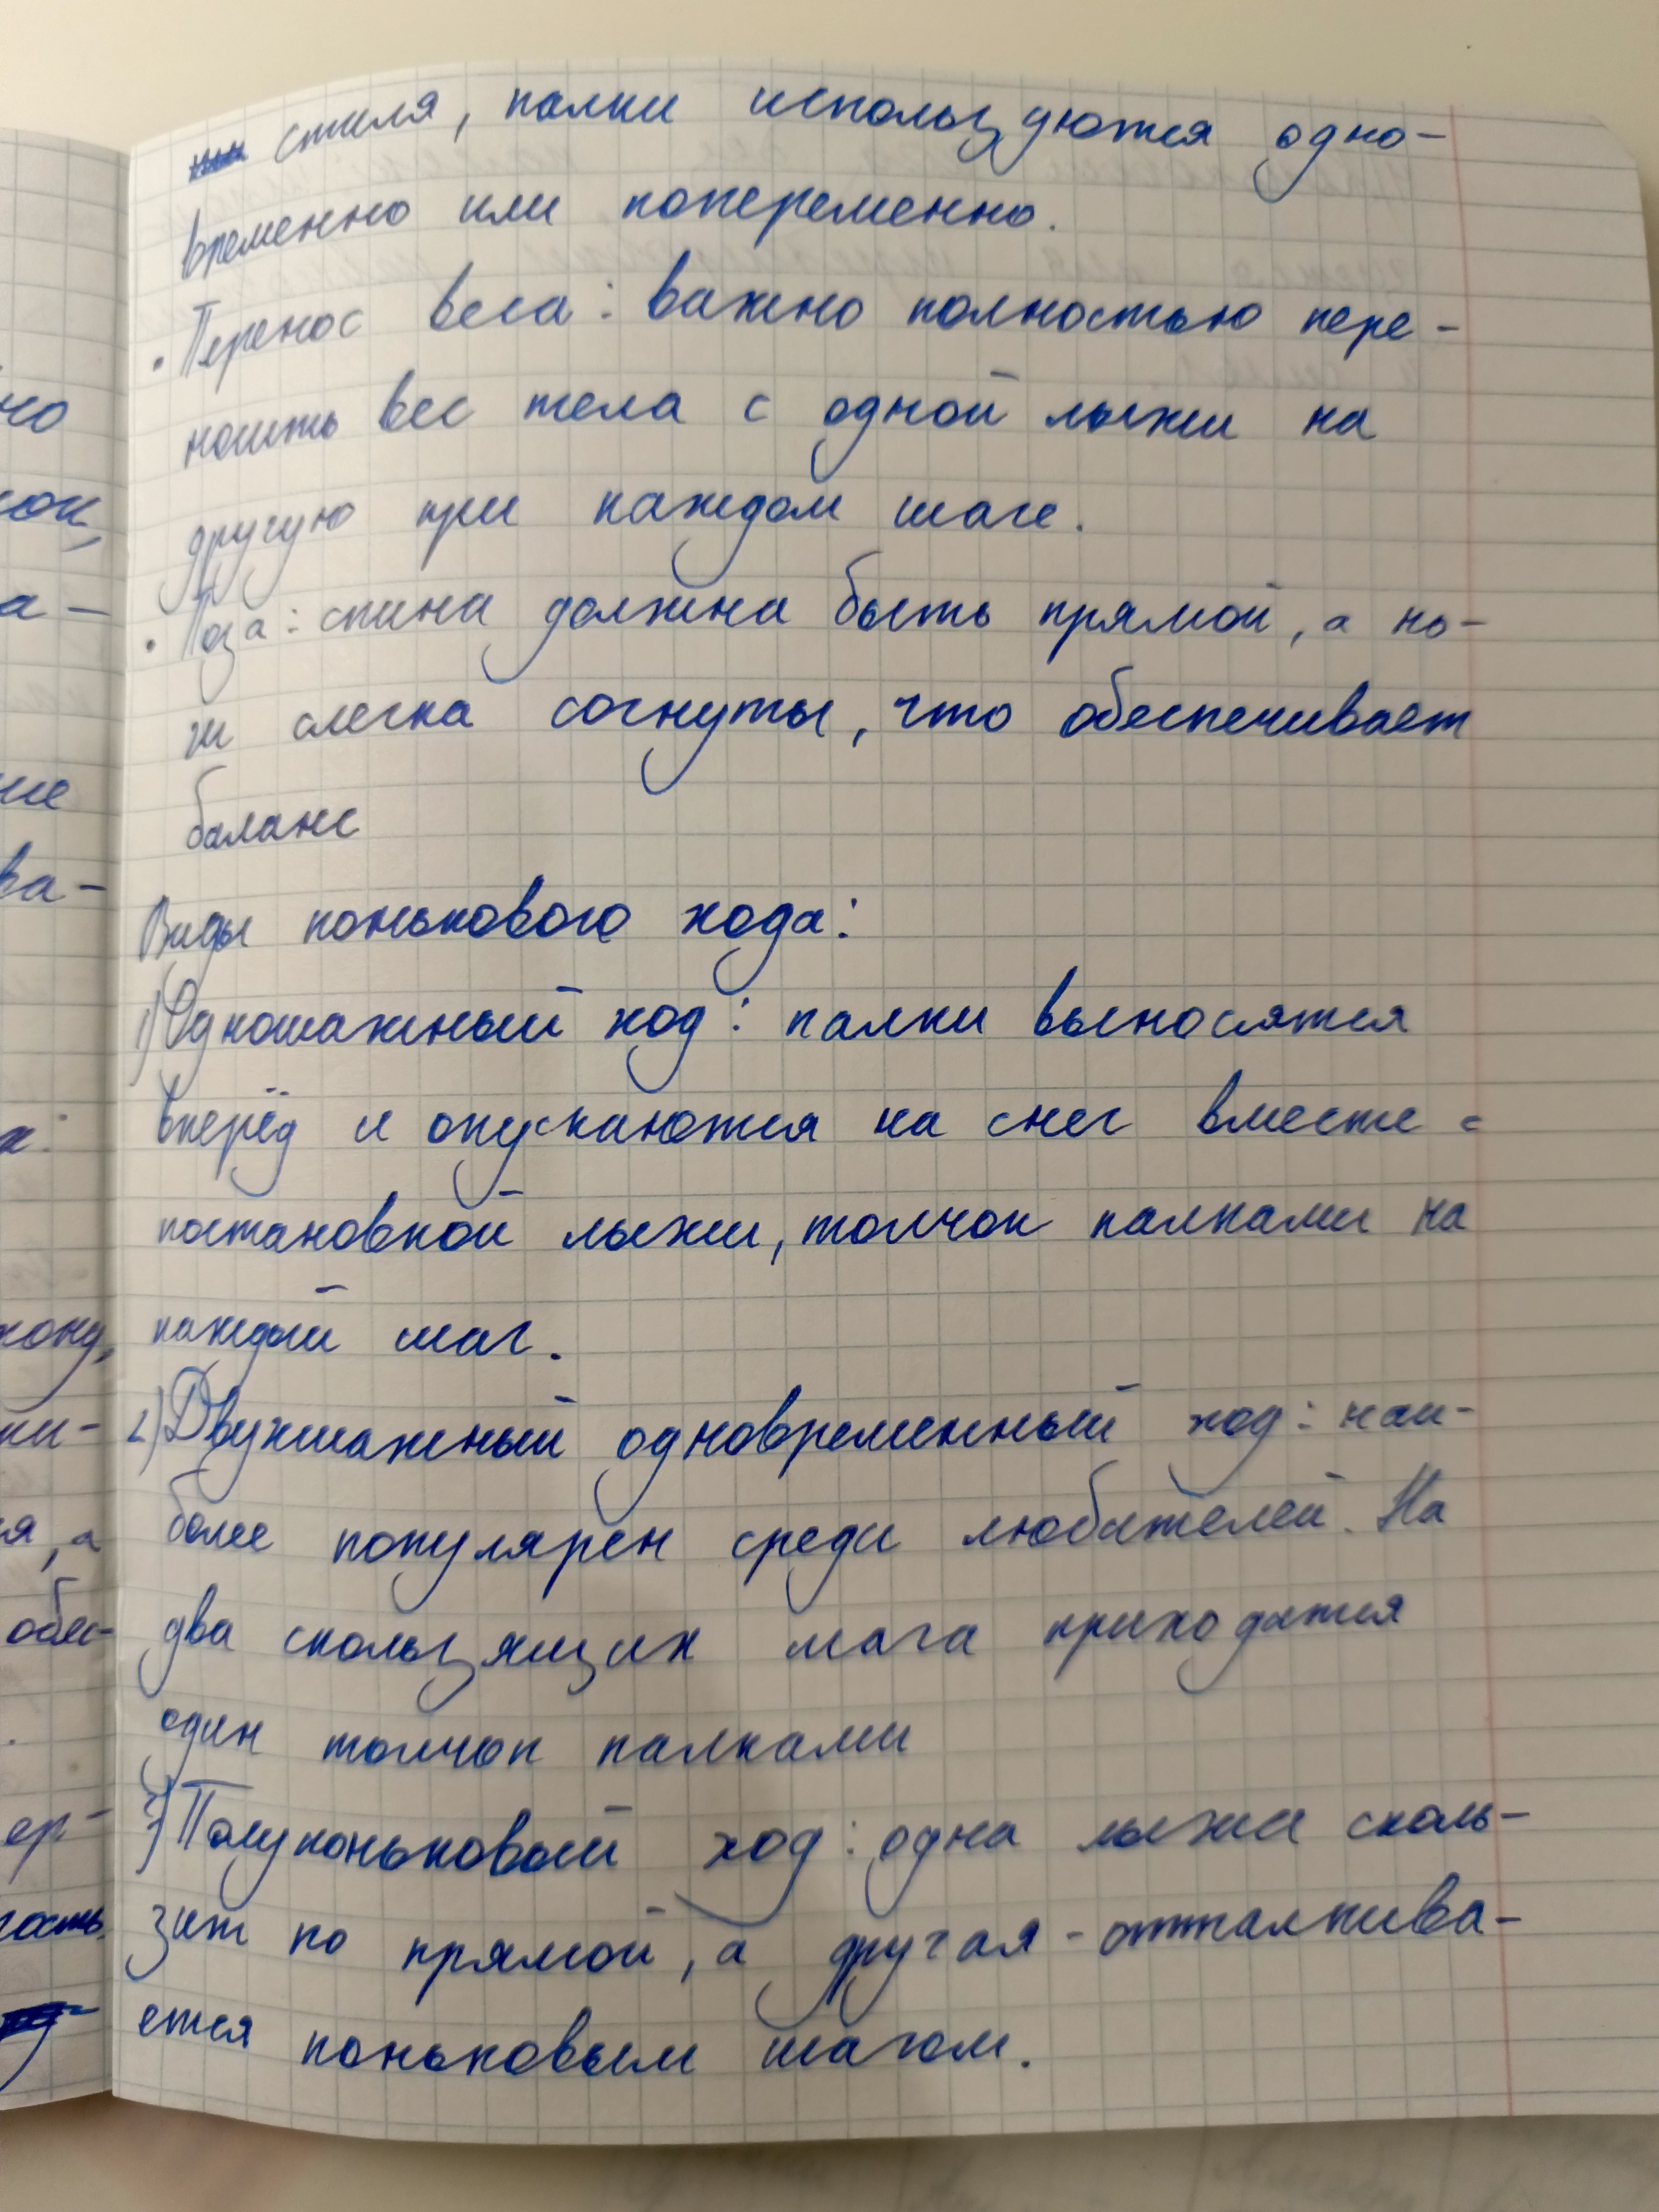 стиля, палки используются одно-
временно или попеременно.
• Перенос веса: важно полностью пере-
носить вес тела с одной лыжи на
другую при каждом шаге.
• Поза: спина должна быть прямой, а но-
ги слегка согнуты, что обеспечивает
баланс
Виды конькового хода:
1) Одношажный ход: палки выносятся
вперёд и опускаются на снег вместе с
постановкой лыжи, толчок палками на
каждый шаг.
2) Двухшажный одновременный ход: наи-
более популярен среди любителей. На
два скользящих шага приходится
один толчок палками
3) Полуконьковый ход: одна лыжа сколь-
зит по прямой, а другая - отталкива-
ется коньковым шагом.